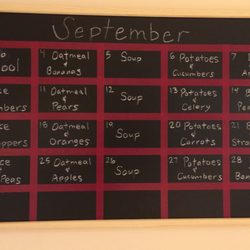 September
ool
4 Oatmeal
&
Bananas
5 Soup
6 Potatoes
&
Cucumbers
7
mbers
11 Oatmeal
&
Pears
12 Soup
13 Potatoes
&
Celery
14
ppers
18 Oatmeal
&
Oranges
19 Soup
20 Potatoes
&
Carrots
21
Peas
25 Oatmeal
&
Apples
26 Soup
27 Potatoes
&
Cucumbers
28